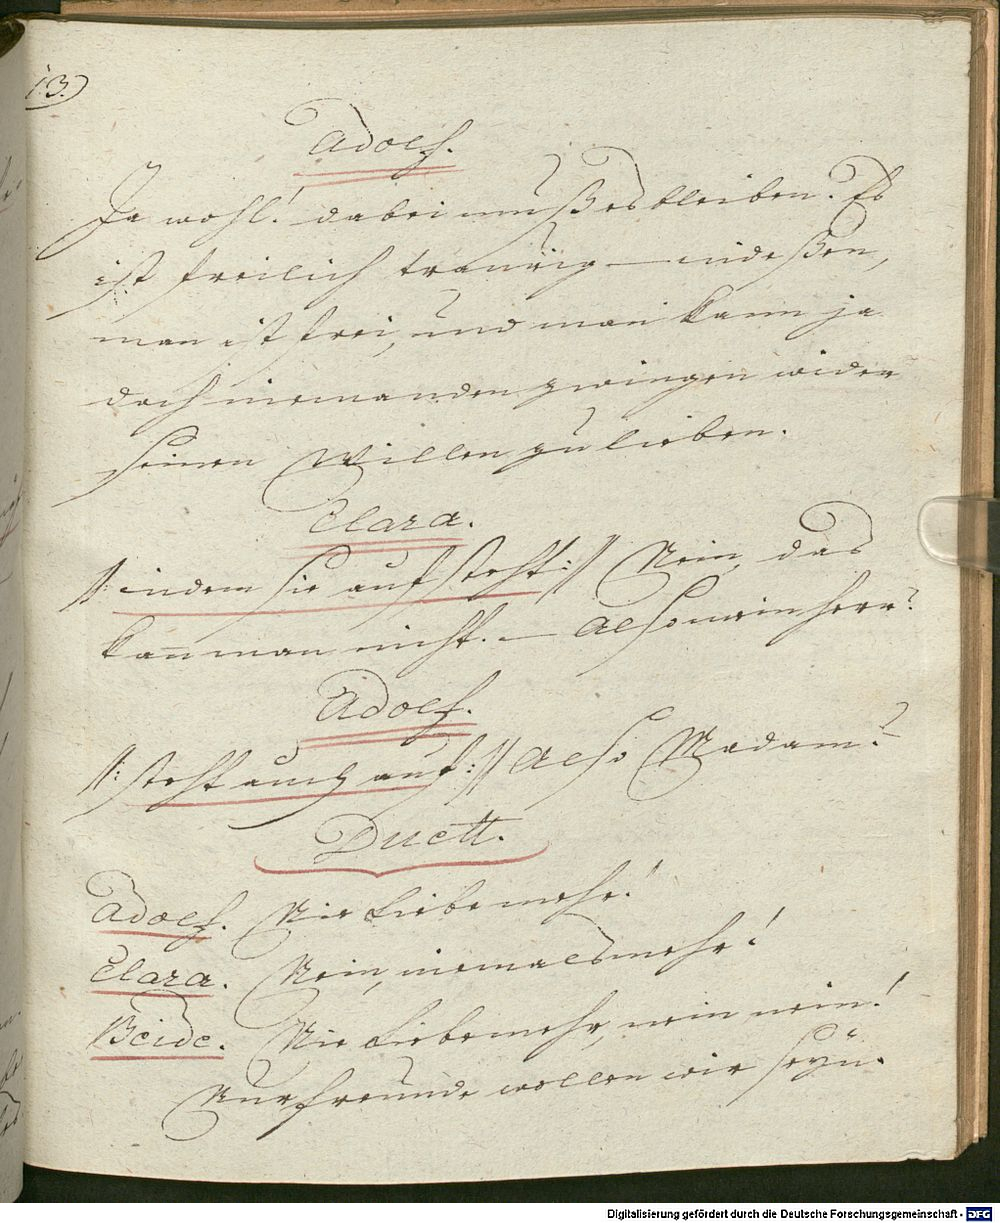 13.
Adolf.
Ja wohl! dabei muß es bleiben. Es
ist freilich traurig — indeßen,
man ist frei, und man kann ja
doch niemanden zwingen wider
seinen Willen zu lieben.
Clara.
//: indem sie aufsteht :// Nein, das
kan̄ man nicht. — Also mein Herr?
Adolf.
//: steht auch auf :// Also Madam?
Duett.
Adolf. Nie Liebe mehr!
Clara. Nein, niemals mehr!
Beide. Nie Liebe mehr, nein nein!
Nur Freunde wollen wir seyn.
Digitalisierung gefördert durch die Deutsche Forschungsgemeinschaft - DFG